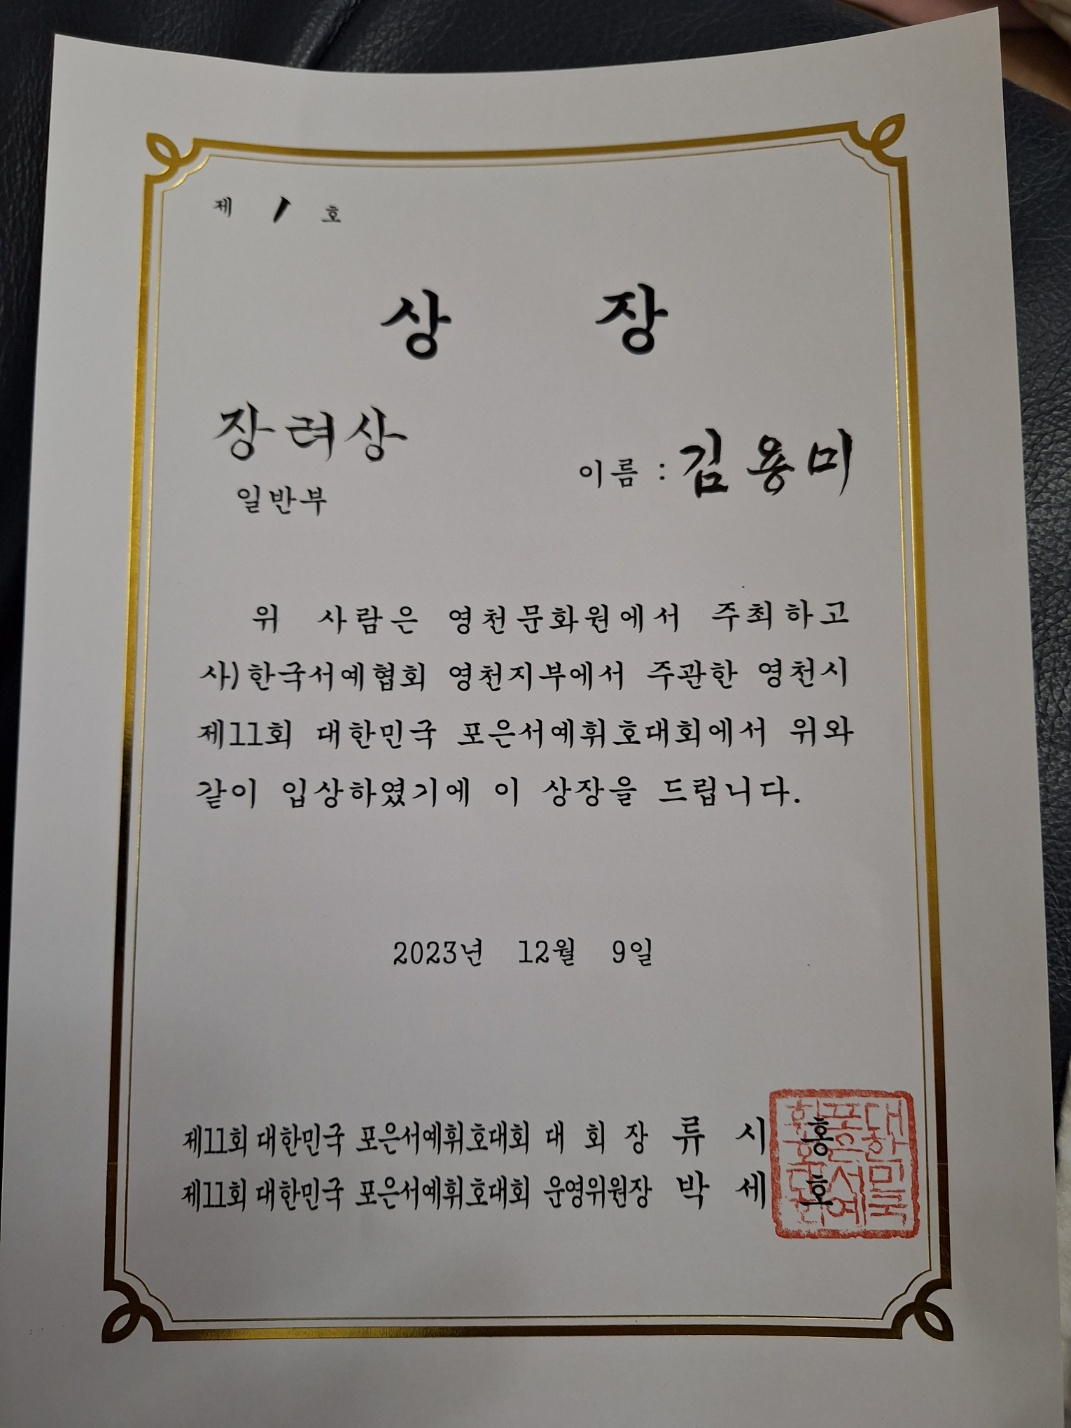 제 1 호
상 장
장려상
이름 : 김용미
일반부
위 사람은 영천문화원에서 주최하고
사)한국서예협회 영천지부에서 주관한 영천시
제11회 대한민국 포은서예휘호대회에서 위와
같이 입상하였기에 이 상장을 드립니다.
2023년 12월 9일
제11회 대한민국 포은서예휘호대회 대 회 장 류 시 홍
제11회 대한민국 포은서예휘호대회 운영위원장 박 세 호
대한민국
포은서예
휘호대회